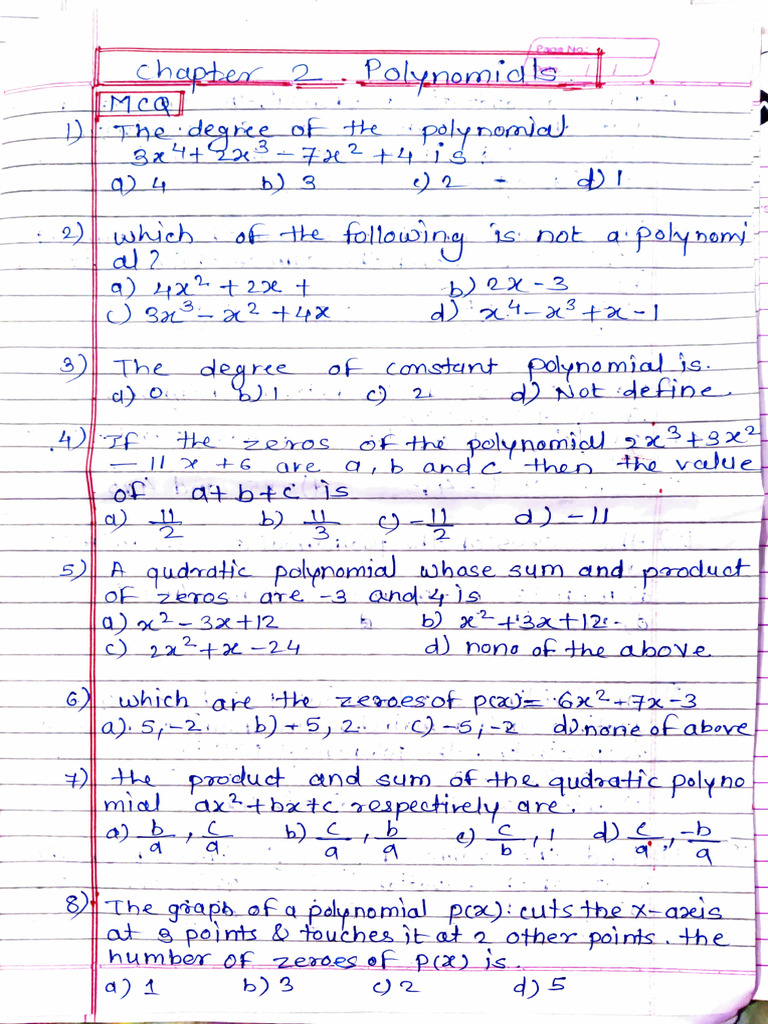 Page No:
Chapter 2. Polynomials
MCQ
1) The degree of the polynomial
3x⁴+2x³-7x²+4 is:
a) 4 b) 3 c) 2 d) 1
2) which of the following is not a polynomi
al?
a) 4x²+2x+ b) 2x-3
c) 3x³-x²+4x d) x⁴-x³+x-1
3) The degree of constant polynomial is.
a) 0 b) 1 c) 2 d) Not define
4) If the zeros of the polynomial 2x³+3x²
-11x+6 are a, b and c then the value
of a+b+c is
a) 11/2 b) 11/3 c) -11/2 d) -11
5) A qudratic polynomial whase sum and product
of zeros are -3 and 4 is
a) x²-3x+12 b) x²+3x+12
c) 2x²+x-24 d) none of the above
6) which are the zeroes of p(x)= 6x²+7x-3
a) 5,-2 b) +5, 2 c) -5,-2 d) none of above
7) the product and sum of the qudratic polyno
mial ax²+bx+c respectively are.
a) b/a, c/a b) c/a, b/a c) c/b, 1 d) c/a, -b/a
8) The graph of a polynomial p(x) cuts the x-axis
at 3 points & touches it at 2 other points. the
number of zeroes of p(x) is.
a) 1 b) 3 c) 2 d) 5